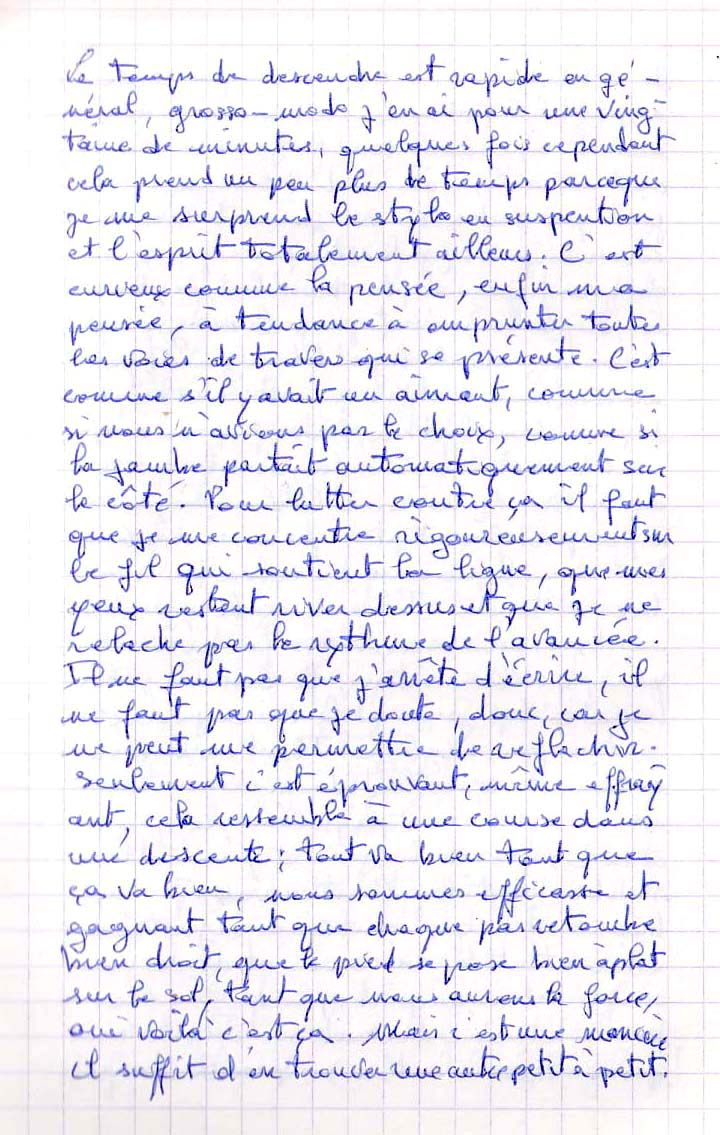 Le temps de descendre est rapide en gé-
néral, grosso-modo j'en ai pour une ving-
taine de minutes, quelques fois cependant
cela prend un peu plus de temps parceque
je me surprend le stylo en suspention
et l'esprit totalement ailleurs. C'est
curieux comme la pensée, enfin ma
pensée, à tendance à emprunter toutes
les voies de travers qui se présente. C'est
comme s'il y avait un aimant, comme
si nous n'avions pas le choix, comme si
la jambe partait automatiquement sur
le côté. Pour lutter contre ça il faut
que je me concentre rigoureusement sur
le fil qui soutient la ligne, que mes
yeux restent river dessus et que je ne
relache pas le rythme de l'avancée.
Il ne faut pas que j'arrête d'écrire, il
ne faut pas que je doute, donc, car je
ne peut me permettre de reflechir.
Seulement c'est éprouvant, même effray
ant, cela ressemble à une course dans
une descente; tout va bien tant que
ça va bien, nous sommes efficasse et
gagnant tant que chaque pas retombe
bien droit, que le pied se pose bien à plat
sur le sol, tant que nous aurons la force,
oui voilà c'est ça. Mais c'est une
il suffit d'en trouver une autre petit à petit.